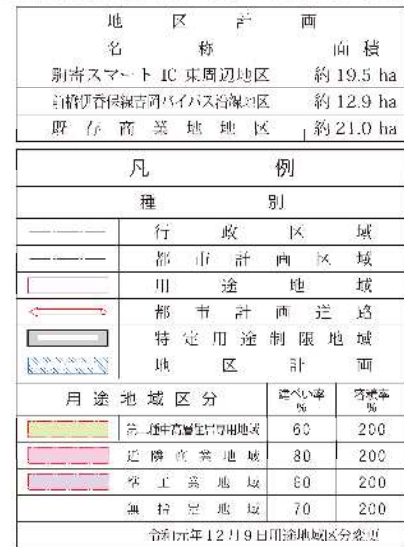 地区計画
名称 面積
駒寄スマートIC東周辺地区 約19.5 ha
前橋伊香保線吉岡バイパス沿線地区 約12.9 ha
既存商業地地区 約21.0 ha
凡例
種別
行政区域
都市計画区域
用途地域
都市計画道路
特定用途制限地域
地区計画
用途地域区分 建ぺい率 % 容積率 %
第二種中高層住居専用地域 60 200
近隣商業地域 80 200
準工業地域 60 200
無指定地域 70 200
令和元年12月9日用途地域区分変更